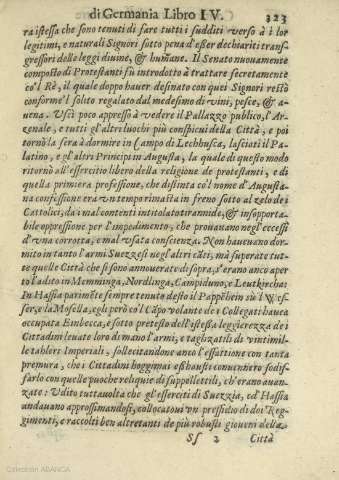 di Germania Libro IV. 323
ra istessa che sono tenuti di fare tutti i sudditi verso à i lor
legitimi, e naturali Signori sotto pena d'eßer dechiariti transgressori
delle leggi diuine, & humane. Il Senato nuouamente
composto di Protestanti fù introdotto à trattare secretamente
co'l Rè, il quale doppo hauer desinato con quei Signori restò
conforme'l solito regalato dal medesimo di vini, pesce, & auena.
Vscì poco appresso à vedere il Pallazzo publico, l'Arzenale,
e tutti gl'altri luochi più conspicui della Città, e poi
tornò la sera à dormire in Campo di Lechhusca, lasciati il Palatino,
e gl'altri Principi in Augusta, la quale di questo modo
ritornò all'essercitio libero della religione de protestanti, e di
quella primiera professione, che distinta co'l nome d'Augustana
confessione era vn tempo rimasta in freno sotto al zelo dei
Cattolici, da i mal contenti intitolato tirannide, & insopportabile
oppressione per l'impedimento, che prouauano negl'eccessi
d'vna corrotta, e mal vsata conscienza. Non haueuano dormito
in tanto l'armi Suezzesi negl'altri cãti, mà superate tutte
quelle Città che si sono annouerate di sopra, s'erano anco aperto
l'adito in Memminga, Nordlinga, Campiduno, e Leutkircha:
In Hassia parimẽte sempre tenuto desto il Pappẽhein sù l'Vesser,
e la Mosella, egli però co'l Capo volante de i Collegati haueа
occupata Embecca, e sotto pretesto dell'istessa leggierezza dei
Cittadini leuate loro di mano l'armi, e taglizatili di vintimille
tahlerr Imperiali, sollecitandone anco l'essattione con tanta
premura, che i Cittadini hoggimai eßhausti conuennero sodisfarlo
con quelle puoche reliquie di suppellettili, ch'erano auanzate:
Vdito tuttauolta che gl'esserciti di Suezzia, ed'Hassia
andauano approssimandosi, collocatoui vn pressidio di doi Reggimenti,
e raccolti ben altretanti de più robusti gioueni della
Sſ 2 Città
Colección ABANCA